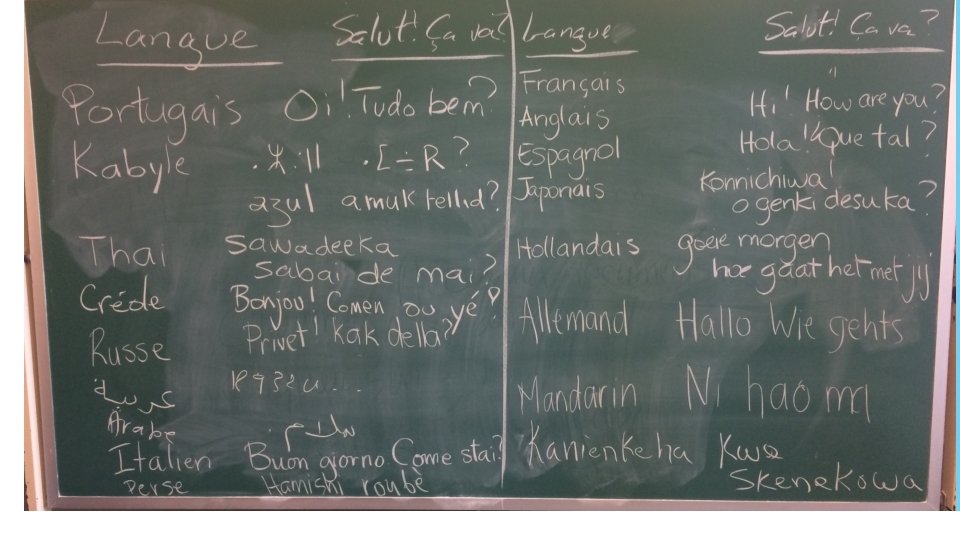 Langue Salut! Ça va?
Portugais Oi! Tudo bem?
Kabyle
azul amuk tellid?
Thai Sawadeeka
Sabai de mai?
Créole Bonjou! Comen ou yé?
Russe Privet! Kak della?
عربية
Arabe سلام.
Italien Buon giorno Come stai?
Perse Hamishi roubé
Langue Salut! Ça va?
Français "
Anglais Hi! How are you?
Espagnol Hola! Que tal?
Japonais Konnichiwa!
o genki desuka?
Hollandais goeie morgen
hoe gaat het met jij
Allemand Hallo Wie gehts
Mandarin Ni hao ma
Kanienkeha Kwe
Skenekowa